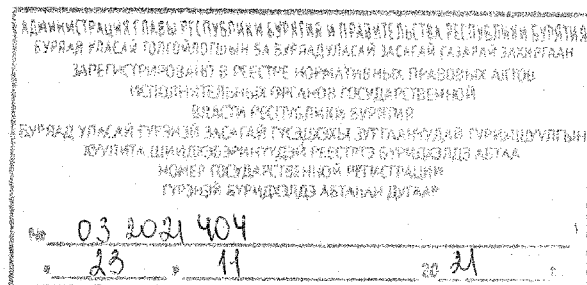 АДМИНИСТРАЦИЯ ГЛАВЫ РЕСПУБЛИКИ БУРЯТИЯ И ПРАВИТЕЛЬСТВА РЕСПУБЛИКИ БУРЯТИЯ
БУРЯАД УЛАСАЙ ТОЛГОЙЛОГШЫН БА БУРЯАД УЛАСАЙ ЗАСАГАЙ ГАЗАРАЙ ЗАХИРГААН
ЗАРЕГИСТРИРОВАНО В РЕЕСТРЕ НОРМАТИВНЫХ ПРАВОВЫХ АКТОВ
ИСПОЛНИТЕЛЬНЫХ ОРГАНОВ ГОСУДАРСТВЕННОЙ
ВЛАСТИ РЕСПУБЛИКИ БУРЯТИЯ
БУРЯАД УЛАСАЙ ГҮРЭНЭЙ ЗАСАГАЙ
РЕЕСТРТЭ БҮРИДХЭЛДЭ АБТАА
НОМЕР ГОСУДАРСТВЕННОЙ РЕГИСТРАЦИИ
ГҮРЭНЭЙ БҮРИДХЭЛДЭ АБТАҺАН ДУГААР
№ 03 2021 404
" 23 " 11 20 21